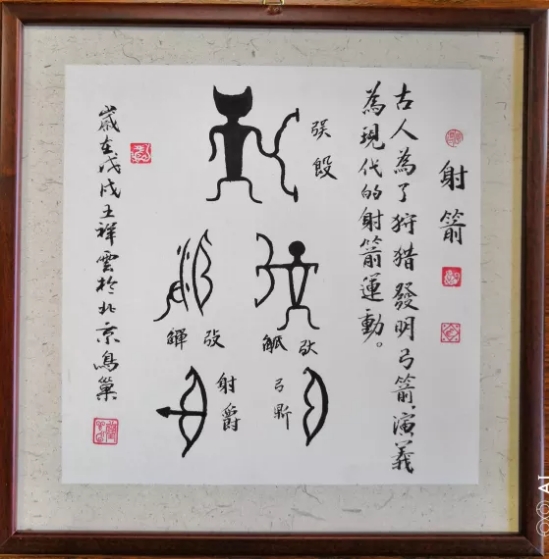 射箭
古人為了狩猎發明弓箭,演義
為現代的射箭運動。
弓鼎
射爵
歲在戊戌王祥雲於北京鳥巢
AI